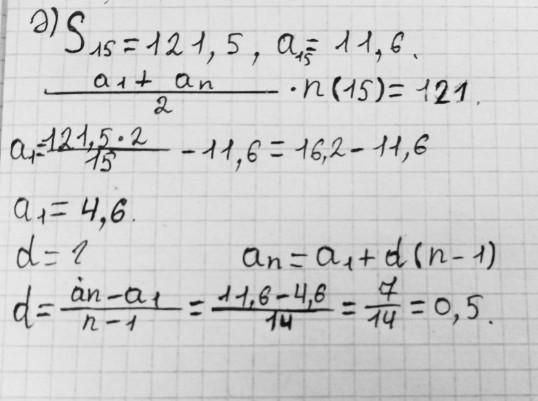 д) S₁₅ = 121,5, a₁₅ = 11,6.
(a₁ + aₙ)/2 · n(15) = 121.
a₁ = (121,5 · 2)/15 - 11,6 = 16,2 - 11,6
a₁ = 4,6.
d = ? aₙ = a₁ + d(n - 1)
d = (aₙ - a₁)/(n - 1) = (11,6 - 4,6)/14 = 7/14 = 0,5.